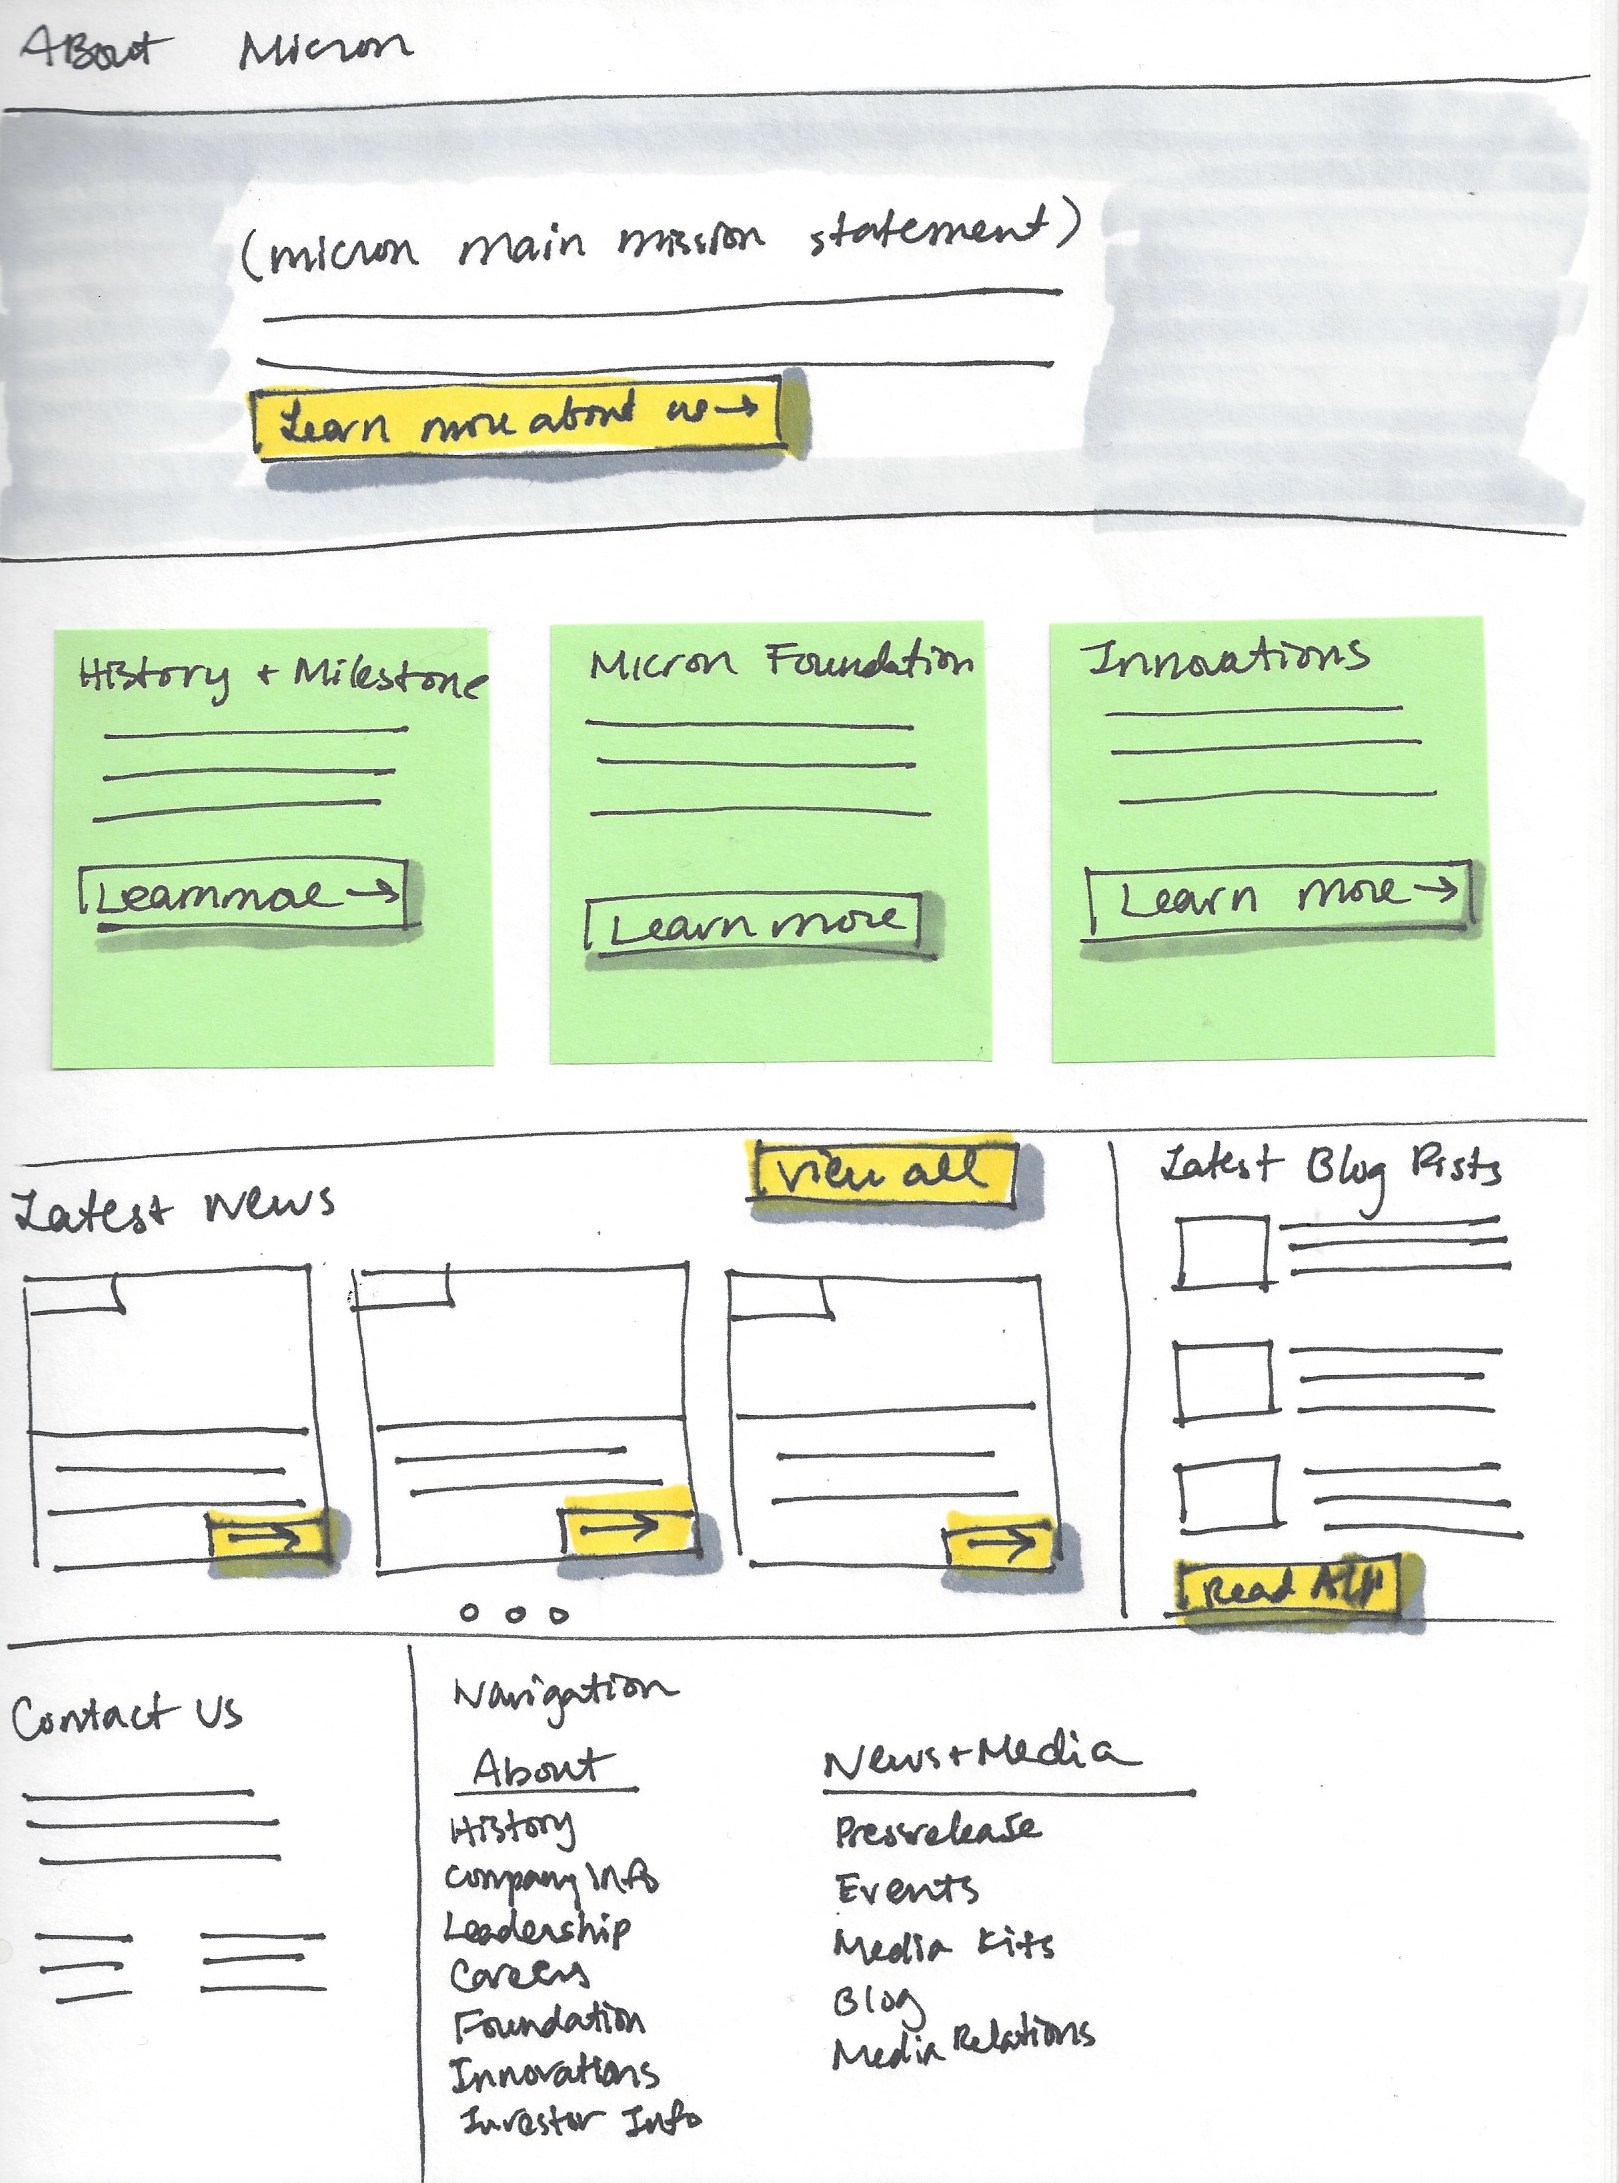 About Micron
(micron main mission statement)
Learn more about us→
History + Milestone
Learn more →
Micron Foundation
Learn more
Innovations
Learn more →
Latest News
View all
→
→
→
Latest Blog Posts
Read All
Contact Us
Navigation
About
History
Company Info
Leadership
Careers
Foundation
Innovations
Investor Info
News + Media
Press release
Events
Media Kits
Blog
Media Relations